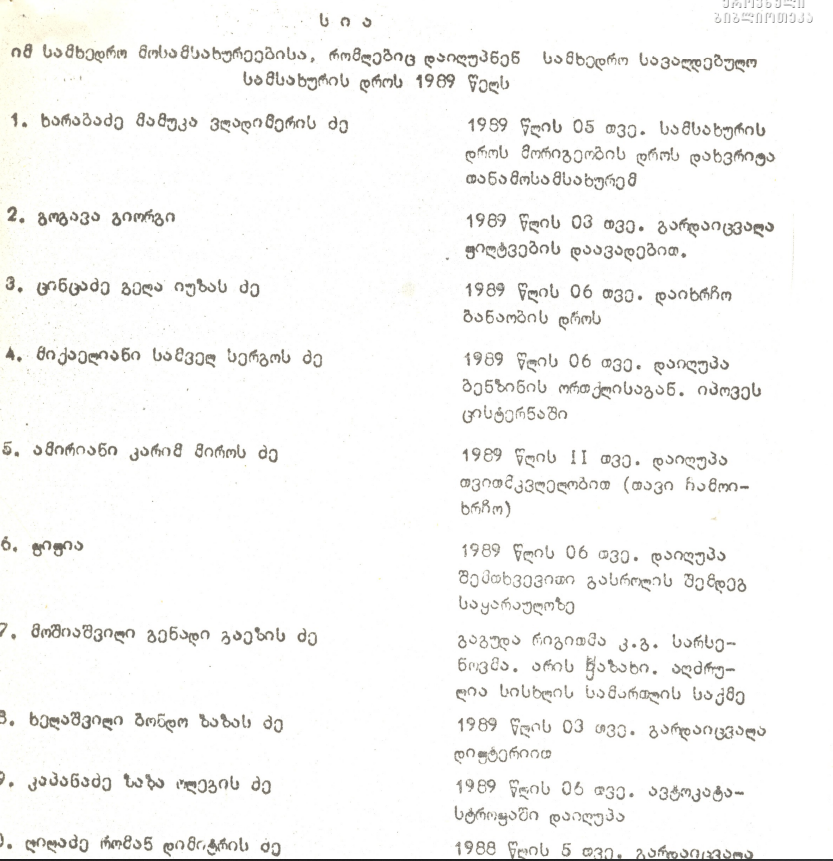 ეროვნული
ბიბლიოთეკა
ს ი ა
იმ სამხედრო მოსამსახურეებისა, რომლებიც დაიღუპნენ სამხედრო სავალდებულო
სამსახურის დროს 1989 წელს
1. ხარაბაძე მამუკა ვლადიმერის ძე
1989 წლის 05 თვე. სამსახურის
დროს მორიგეობის დროს დახვრიტა
თანამოსამსახურემ
2. გოგავა გიორგი
1989 წლის 03 თვე. გარდაიცვალა
ფილტვების დაავადებით.
3. ცინცაძე გელა იუზას ძე
1989 წლის 06 თვე. დაიხრჩო
ბანაობის დროს
4. მიქაელიანი სამველ სერგოს ძე
1989 წლის 06 თვე. დაიღუპა
ბენზინის ორთქლისაგან. იპოვეს
ცისტერნაში
5. ამირიანი კარიმ მიროს ძე
1989 წლის II თვე. დაიღუპა
თვითმკვლელობით (თავი ჩამოი-
ხრჩო)
6. ჟიჟია
1989 წლის 06 თვე. დაიღუპა
შემთხვევითი გასროლის შემდეგ
საყარაულოზე
7. მოშიაშვილი გენადი გაეზის ძე
გაგუდა რიგითმა კ.გ. სარსე-
ნოვმა. არის ყაზახი. აღძრუ-
ლია სისხლის სამართლის საქმე
8. ხელაშვილი ბონდო ზაზას ძე
1989 წლის 03 თვე. გარდაიცვალა
დიფტერიით
9. კაპანაძე ზაზა ოლეგის ძე
1989 წლის 06 თვე. ავტოკატა-
სტროფაში დაიღუპა
0. ლილაძე რომან დიმიტრის ძე
1988 წლის 5 თვე. გარდაიცვალა